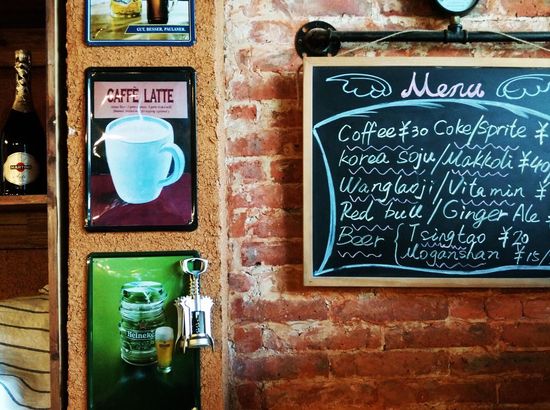 GUT, BESSER, PAULANER.
CAFFÈ LATTE
MARTINI
Heineken
Menu
Coffee ¥30 Coke/Sprite ¥
Korea soju/Makkoli ¥40
Wanglaoji/Vitamin ¥
Red bull/Ginger Ale
Beer { Tsingtao ¥20
Moganshan ¥15/